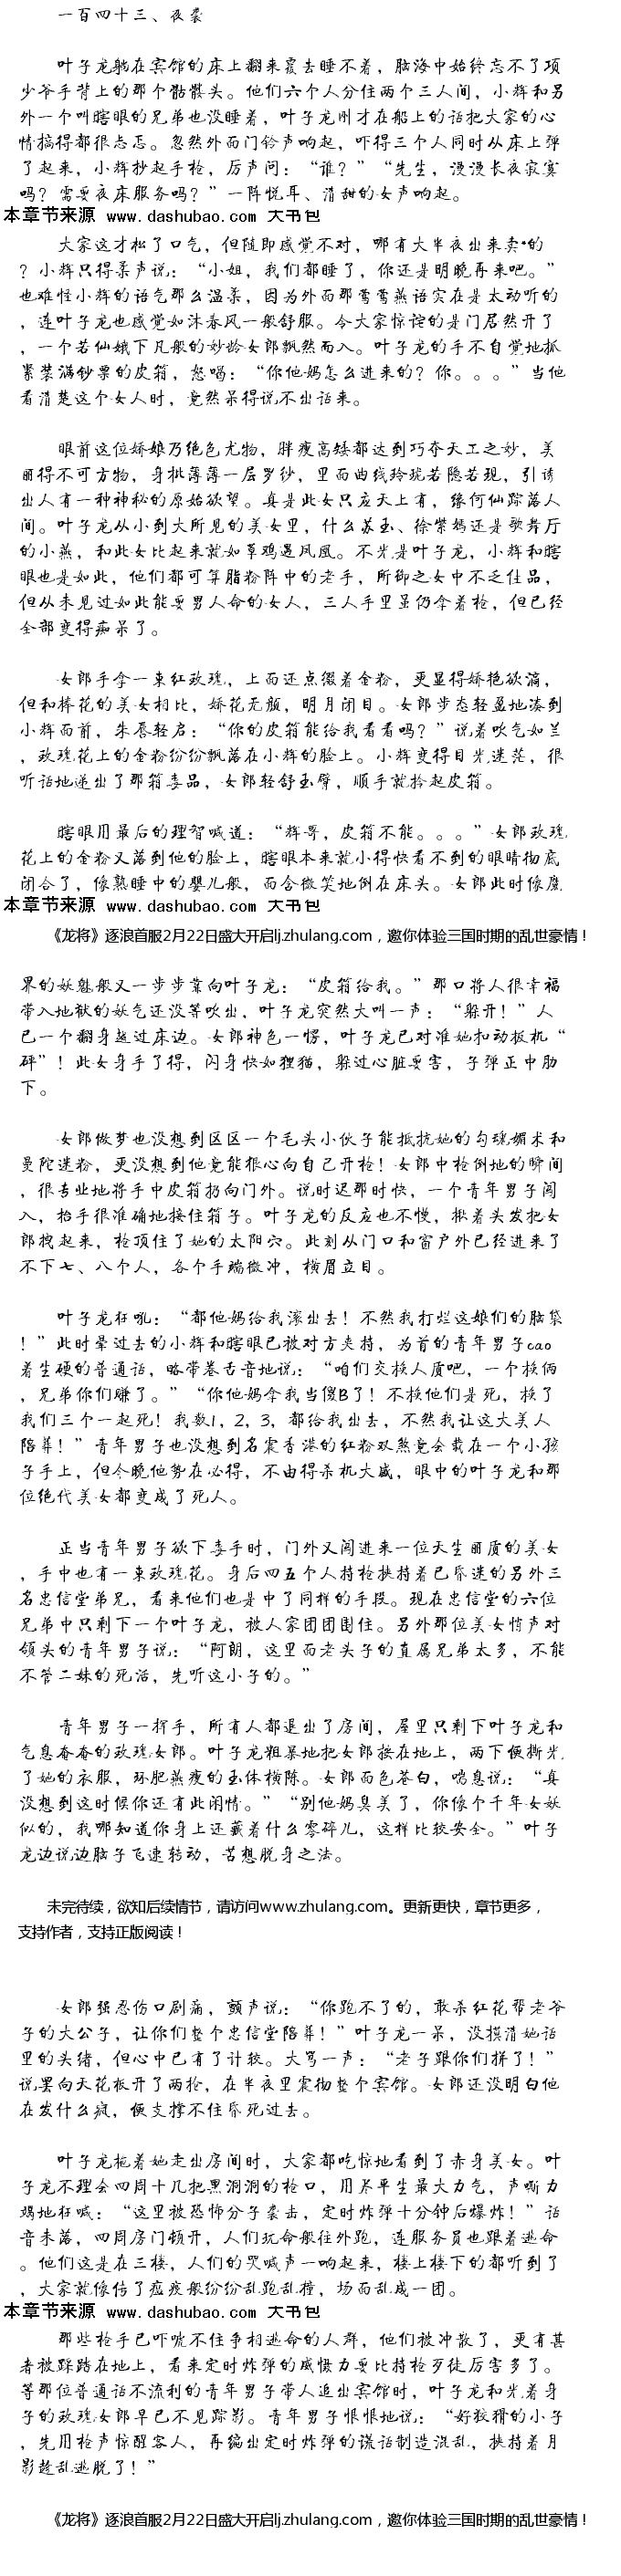 一百四十三、夜袭
叶子龙躺在宾馆的床上翻来覆去睡不着，脑海中始终忘不了项
少爷手背上的那个骷髅头。他们六个人分住两个三人间，小辉和另
外一个叫瞎眼的兄弟也没睡着，叶子龙刚才在船上的话把大家的心
情搞得都很忐忑。忽然外面门铃声响起，吓得三个人同时从床上弹
了起来，小辉抄起手枪，厉声问：“谁？”“先生，漫漫长夜寂寞
吗？需要夜床服务吗？”一阵悦耳、清甜的女声响起。
本章节来源 www.dashubao.com 大书包
大家这才松了口气，但随即感觉不对，哪有大半夜出来卖·的
？小辉只得柔声说：“小姐，我们都睡了，你还是明晚再来吧。”
也难怪小辉的语气那么温柔，因为外面那莺莺燕语实在是太动听的
，连叶子龙也感觉如沐春风一般舒服。令大家惊诧的是门居然开了
，一个若仙娥下凡般的妙龄女郎飘然而入。叶子龙的手不自觉地抓
紧装满钞票的皮箱，怒喝：“你他妈怎么进来的？你。。。”当他
看清楚这个女人时，竟然呆得说不出话来。
眼前这位娇娘乃绝色尤物，胖瘦高矮都达到巧夺天工之妙，美
丽得不可方物，身批薄薄一层罗纱，里面曲线玲珑若隐若现，引诱
出人有一种神秘的原始欲望。真是此女只应天上有，缘何仙踪落人
间。叶子龙从小到大所见的美女里，什么苏玉、徐紫嫣还是歌舞厅
的小燕，和此女比起来就如草鸡遇凤凰。不光是叶子龙，小辉和瞎
眼也是如此，他们都可算脂粉阵中的老手，所御之女中不乏佳品，
但从未见过如此能要男人命的女人，三人手里虽仍拿着枪，但已经
全部变得痴呆了。
女郎手拿一束红玫瑰，上面还点缀着金粉，更显得娇艳欲滴，
但和捧花的美女相比，娇花无颜，明月闭目。女郎步态轻盈地凑到
小辉面前，朱唇轻启：“你的皮箱能给我看看吗？”说着吹气如兰
，玫瑰花上的金粉纷纷飘落在小辉的脸上。小辉变得目光迷茫，很
听话地递出了那箱毒品，女郎轻舒玉臂，顺手就拎起皮箱。
瞎眼用最后的理智喊道：“辉哥，皮箱不能。。。”女郎玫瑰
花上的金粉又落到他的脸上，瞎眼本来就小得快看不到的眼睛彻底
闭合了，像熟睡中的婴儿般，面含微笑地倒在床头。女郎此时像魔
本章节来源 www.dashubao.com 大书包
《龙将》逐浪首服2月22日盛大开启lj.zhulang.com，邀你体验三国时期的乱世豪情！
界的妖魅般又一步步靠向叶子龙：“皮箱给我。”那口将人很幸福
带入地狱的妖气还没等吹出，叶子龙突然大叫一声：“躲开！”人
已一个翻身越过床边。女郎神色一愣，叶子龙已对准她扣动扳机“
砰”！此女身手了得，闪身快如狸猫，躲过心脏要害，子弹正中肋
下。
女郎做梦也没想到区区一个毛头小伙子能抵抗她的勾魂媚术和
曼陀迷粉，更没想到他竟能狠心向自己开枪！女郎中枪倒地的瞬间
，很专业地将手中皮箱扔向门外。说时迟那时快，一个青年男子闯
入，抬手很准确地接住箱子。叶子龙的反应也不慢，揪着头发把女
郎拽起来，枪顶住了她的太阳穴。此刻从门口和窗户外已经进来了
不下七、八个人，各个手端微冲，横眉立目。
叶子龙狂吼：“都他妈给我滚出去！不然我打烂这娘们的脑袋
！”此时晕过去的小辉和瞎眼已被对方夹持，为首的青年男子cao
着生硬的普通话，略带卷舌音地说：“咱们交换人质吧，一个换俩
，兄弟你们赚了。”“你他妈拿我当傻B了！不换他们是死，换了
我们三个一起死！我数1，2，3，都给我出去，不然我让这大美人
陪葬！”青年男子也没想到名震香港的红粉双煞竟会载在一个小孩
子手上，但今晚他势在必得，不由得杀机大盛，眼中的叶子龙和那
位绝代美女都变成了死人。
正当青年男子欲下毒手时，门外又闯进来一位天生丽质的美女
，手中也有一束玫瑰花。身后四五个人持枪挟持着已昏迷的另外三
名忠信堂弟兄，看来他们也是中了同样的手段。现在忠信堂的六位
兄弟中只剩下一个叶子龙，被人家团团围住。另外那位美女悄声对
领头的青年男子说：“阿朗，这里面老头子的直属兄弟太多，不能
不管二妹的死活，先听这小子的。”
青年男子一挥手，所有人都退出了房间，屋里只剩下叶子龙和
气息奄奄的玫瑰女郎。叶子龙粗暴地把女郎按在地上，两下便撕光
了她的衣服，环肥燕瘦的玉体横陈。女郎面色苍白，喘息说：“真
没想到这时候你还有此闲情。”“别他妈臭美了，你像个千年女妖
似的，我哪知道你身上还藏着什么零碎儿，这样比较安全。”叶子
龙边说边脑子飞速转动，苦想脱身之法。
未完待续，欲知后续情节，请访问www.zhulang.com。更新更快，章节更多，
支持作者，支持正版阅读！
女郎强忍伤口剧痛，颤声说：“你跑不了的，敢杀红花帮老爷
子的大公子，让你们整个忠信堂陪葬！”叶子龙一呆，没摸清她话
里的头绪，但心中已有了计较。大骂一声：“老子跟你们拼了！”
说罢向天花板开了两枪，在半夜里震彻整个宾馆。女郎还没明白他
在发什么疯，便支撑不住昏死过去。
叶子龙拖着她走出房间时，大家都吃惊地看到了赤身美女。叶
子龙不理会四周十几把黑洞洞的枪口，用尽平生最大力气，声嘶力
竭地狂喊：“这里被恐怖分子袭击，定时炸弹十分钟后爆炸！”话
音未落，四周房门顿开，人们玩命般往外跑，连服务员也跟着逃命
。他们这是在三楼，人们的哭喊声一响起来，楼上楼下的都听到了
，大家就像传了瘟疫般纷纷乱跑乱撞，场面乱成一团。
本章节来源 www.dashubao.com 大书包
那些枪手已吓唬不住争相逃命的人群，他们被冲散了，更有甚
者被踩踏在地上，看来定时炸弹的威慑力要比持枪歹徒厉害多了。
等那位普通话不流利的青年男子带人追出宾馆时，叶子龙和光着身
子的玫瑰女郎早已不见踪影。青年男子恨恨地说：“好狡猾的小子
，先用枪声惊醒客人，再编出定时炸弹的谎话制造混乱，挟持着月
影趁乱逃脱了！”
《龙将》逐浪首服2月22日盛大开启lj.zhulang.com，邀你体验三国时期的乱世豪情！